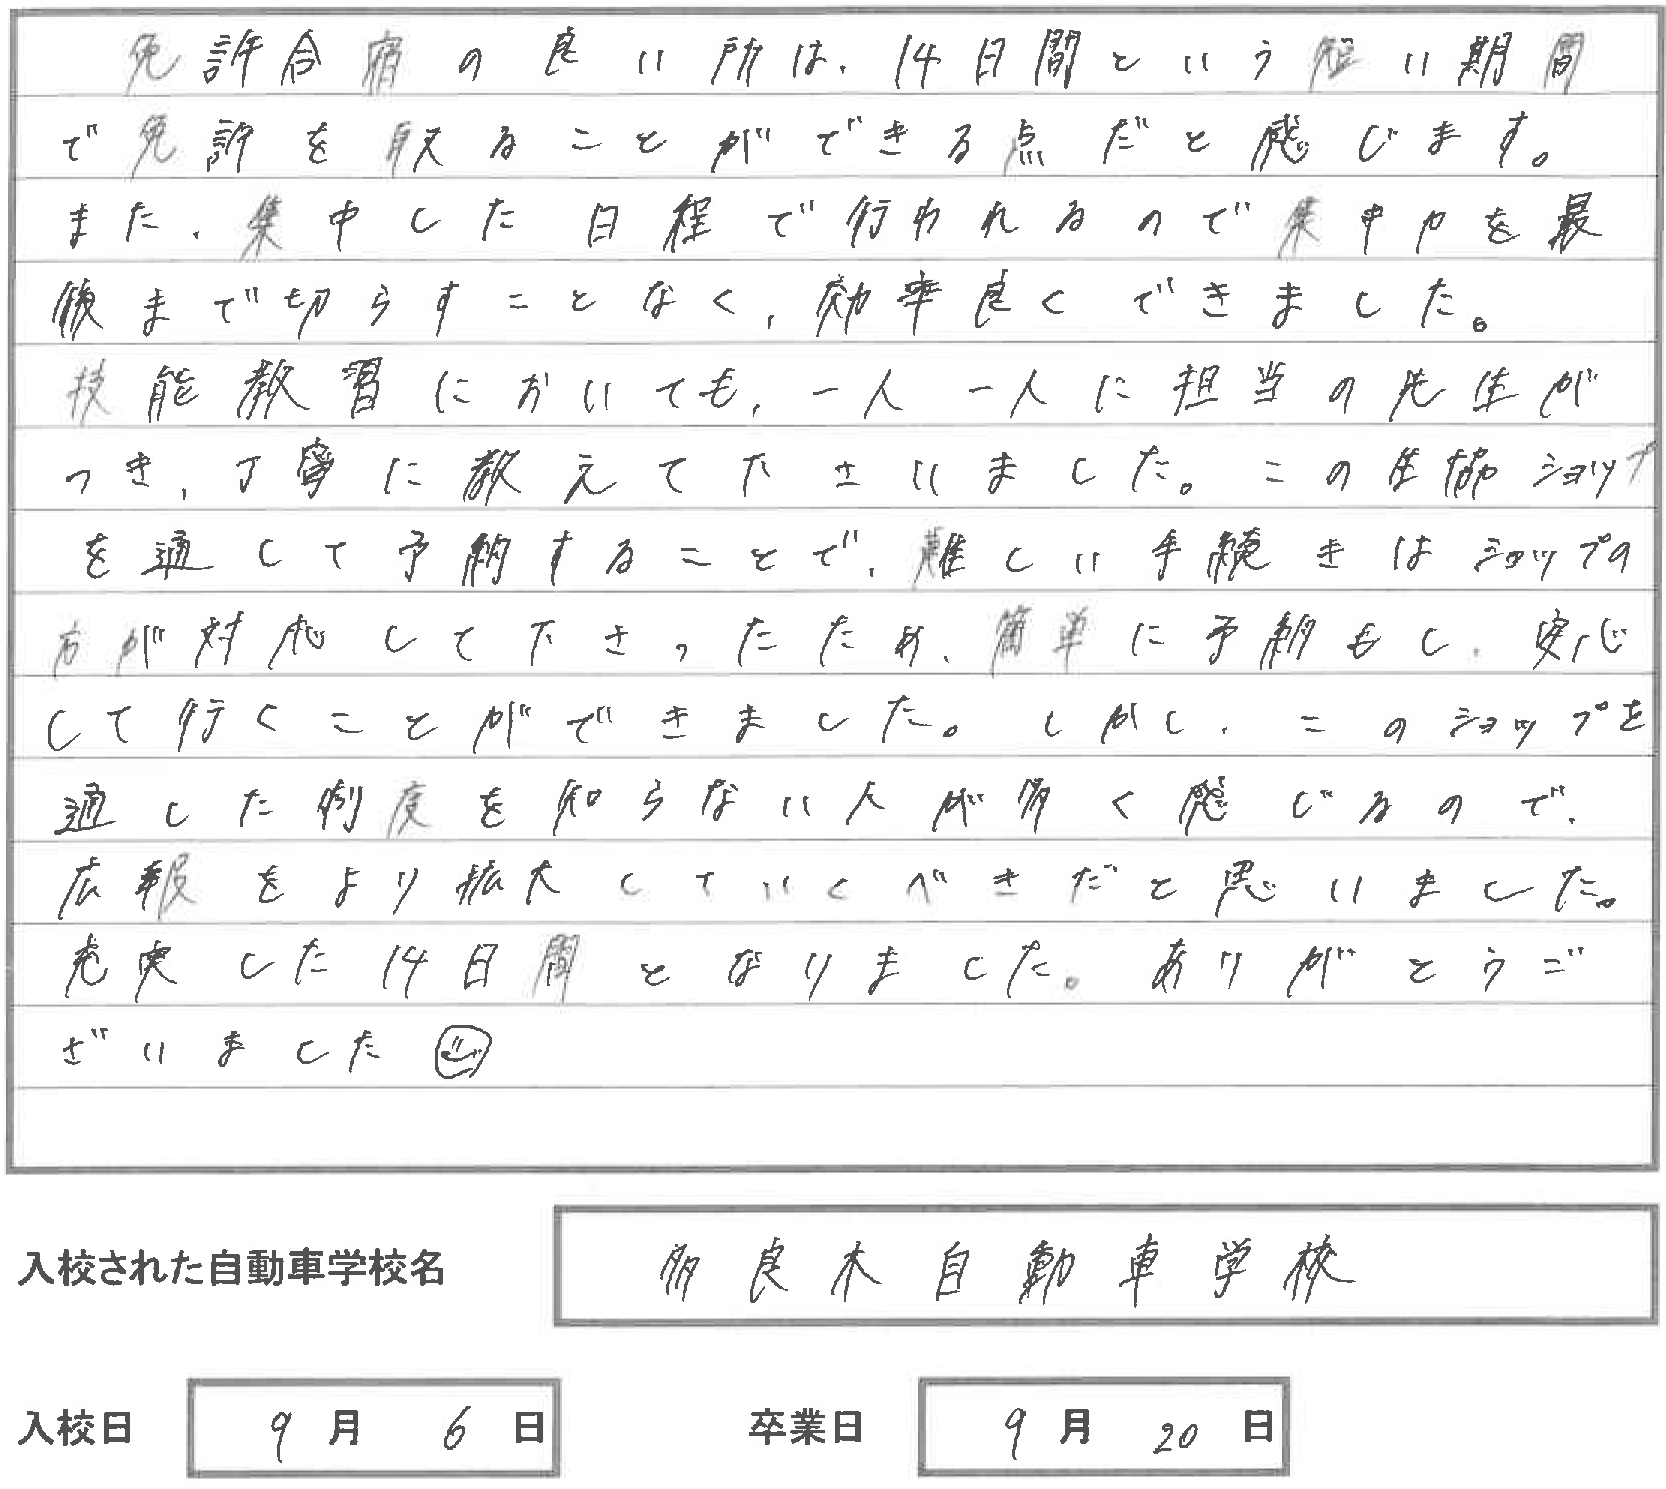 免許合宿の良い所は、14日間という短い期間
で免許を取ることができる点だと感じます。
また、集中した日程で行われるので集中力を最
後まで切らすことなく、効率良くできました。
技能教習においても、一人一人に担当の先生が
つき、丁寧に教えて下さいました。この生協ショップ
を通して予約することで、難しい手続きはショップの
方が対応して下さったため、簡単に予約もし、安心
して行くことができました。しかし、このショップを
通した制度を知らない人が多く感じるので、
広報をより拡大していくべきだと思いました。
充実した14日間となりました。ありがとうご
ざいました
入校された自動車学校名 多良木自動車学校
入校日 9月6日 卒業日 9月20日